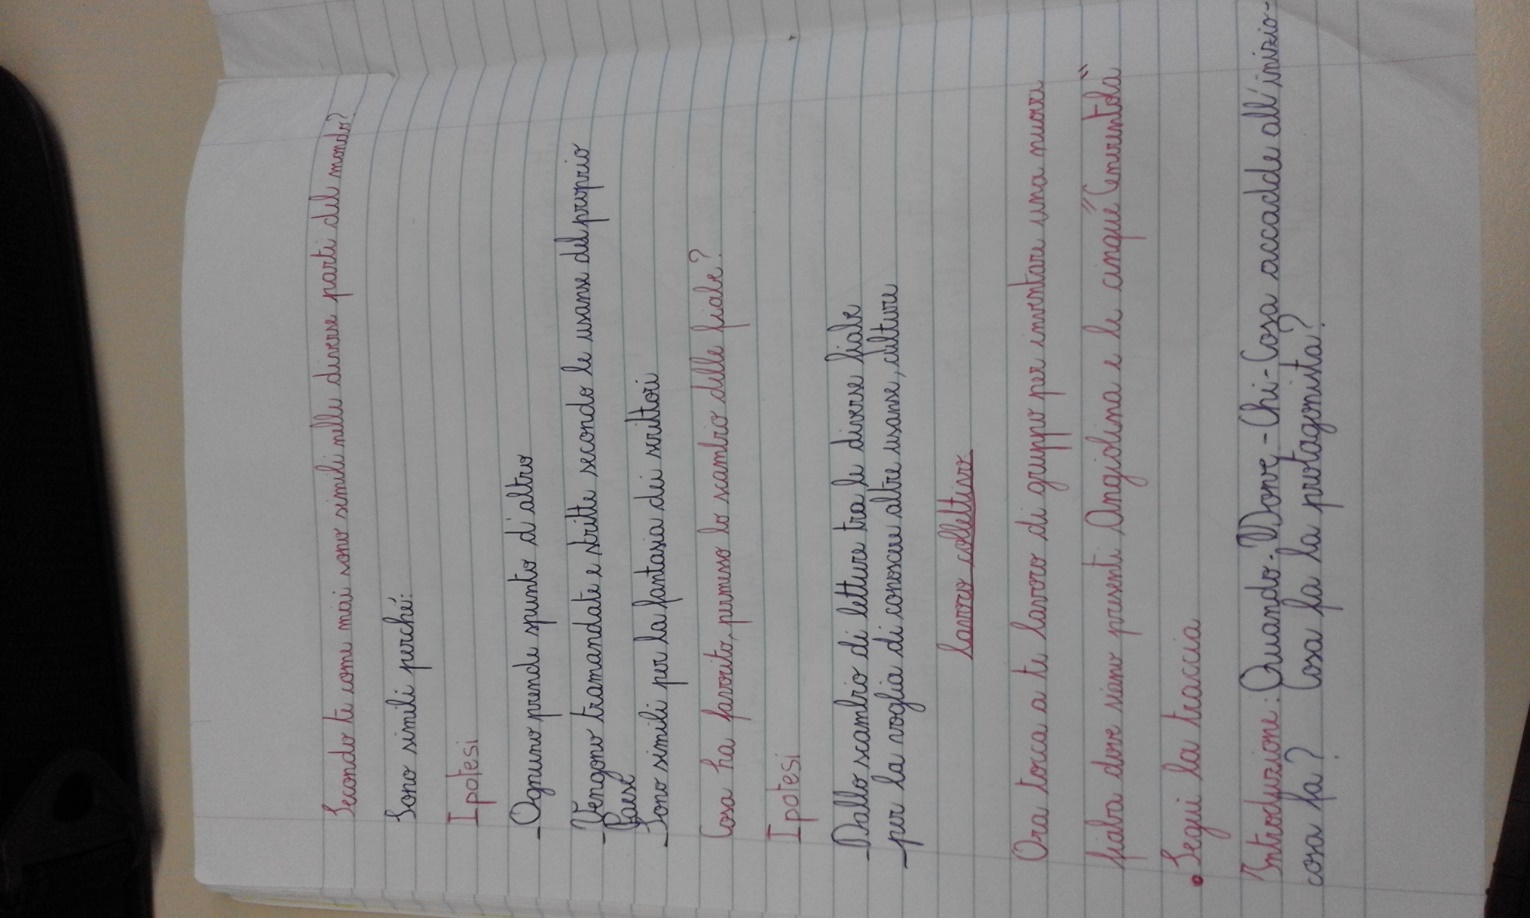 Secondo te come mai sono simili nelle diverse parti del mondo?
Sono simili perché:
Ipotesi
-Ognuno prende spunto d'altro
-Vengono tramandate e stritte secondo le usanze del proprio
Paese
-Sono simili per la fantasia dei scrittori
Cosa ha favorito, permesso lo scambio delle fiabe?
Ipotesi
-Dallo scambio di letture tra le diverse fiabe
-per la voglia di conoscere altre usanze, culture
lavoro collettivo
Ora tocca a te lavoro di gruppo per inventare una nuova
fiaba dove siano presenti Angiolina e le cinque "Cenerentola"
• Segui la traccia
Introduzione: Quando - Dove - Chi - Cosa accadde all'inizio -
cosa fa? Cosa fa la protagonista?